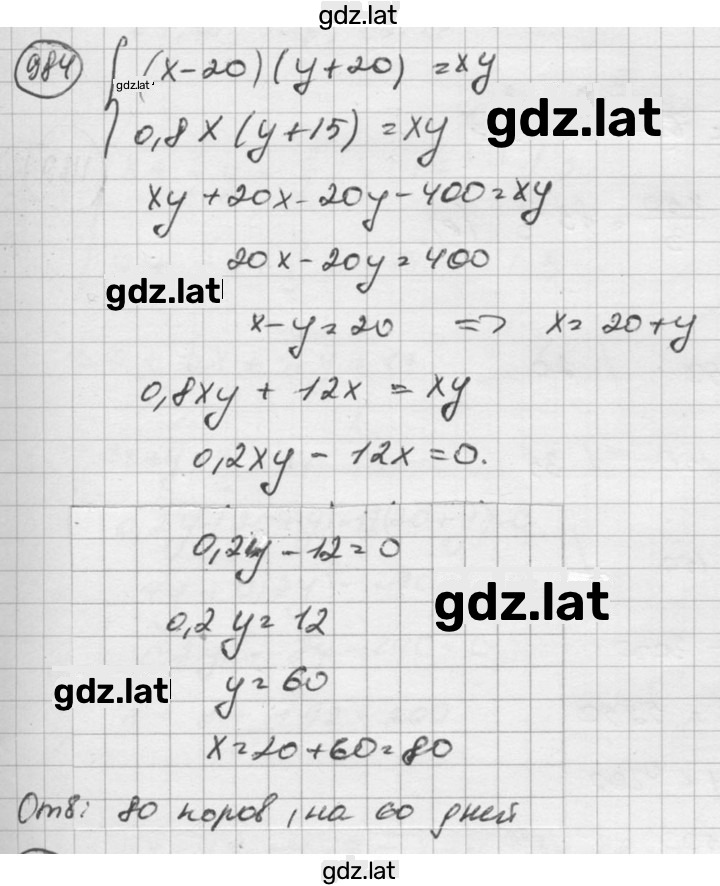 gdz.lat
984 { (x-20)(y+20) = xy
gdz.lat
0,8x(y+15) = xy
gdz.lat
xy+20x-20y-400=xy
20x-20y=400
gdz.lat
x-y=20 => x=20+y
0,8xy + 12x = xy
0,2xy - 12x = 0.
0,2y-12=0
gdz.lat
0,2y=12
gdz.lat
y=60
x=20+60=80
Отв: 80 коров, на 60 дней
gdz.lat